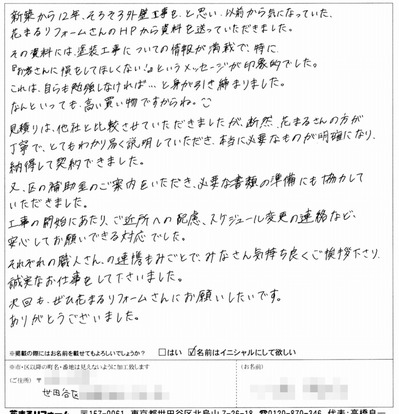 新築から12年、そろそろ外壁工事を、と思い、以前から気になっていた、
花まるリフォームさんのHPから資料を送っていただきました。
その資料には、塗装工事についての情報が満載で、特に
『お客さんに損をしてほしくない!』というメッセージが印象的でした。
これは、自らも勉強しなければ…と身が引き締まりました。
なんといっても、高い買い物ですからね。
見積りは、他社と比較させていただきましたが、断然、花まるさんの方が
丁寧で、とてもわかり易く説明していただき、本当に必要なものが明確になり、
納得して契約できました。
又、区の補助金のご案内をいただき、必要な書類の準備にも協力して
いただきました。
工事の開始にあたり、ご近所への配慮、スケジュール変更の連絡など、
安心してお願いできる対応でした。
それぞれの職人さんの連携もみごとで、みなさん気持ち良くご挨拶下さり、
誠実なお仕事をして下さいました。
次回も、ぜひ花まるリフォームさんにお願いしたいです。
ありがとうございました。
※掲載の際にはお名前を載せてもよろしいでしょうか? □はい ☑名前はイニシャルにして欲しい
※市・区以降の町名・番地は見えないように加工致します
(ご住所) 〒 (お名前)
世田谷区
花まるリフォーム 〒157-0061 東京都世田谷区北烏山7-26-18 ☎0120-870-346 代表:高橋良一